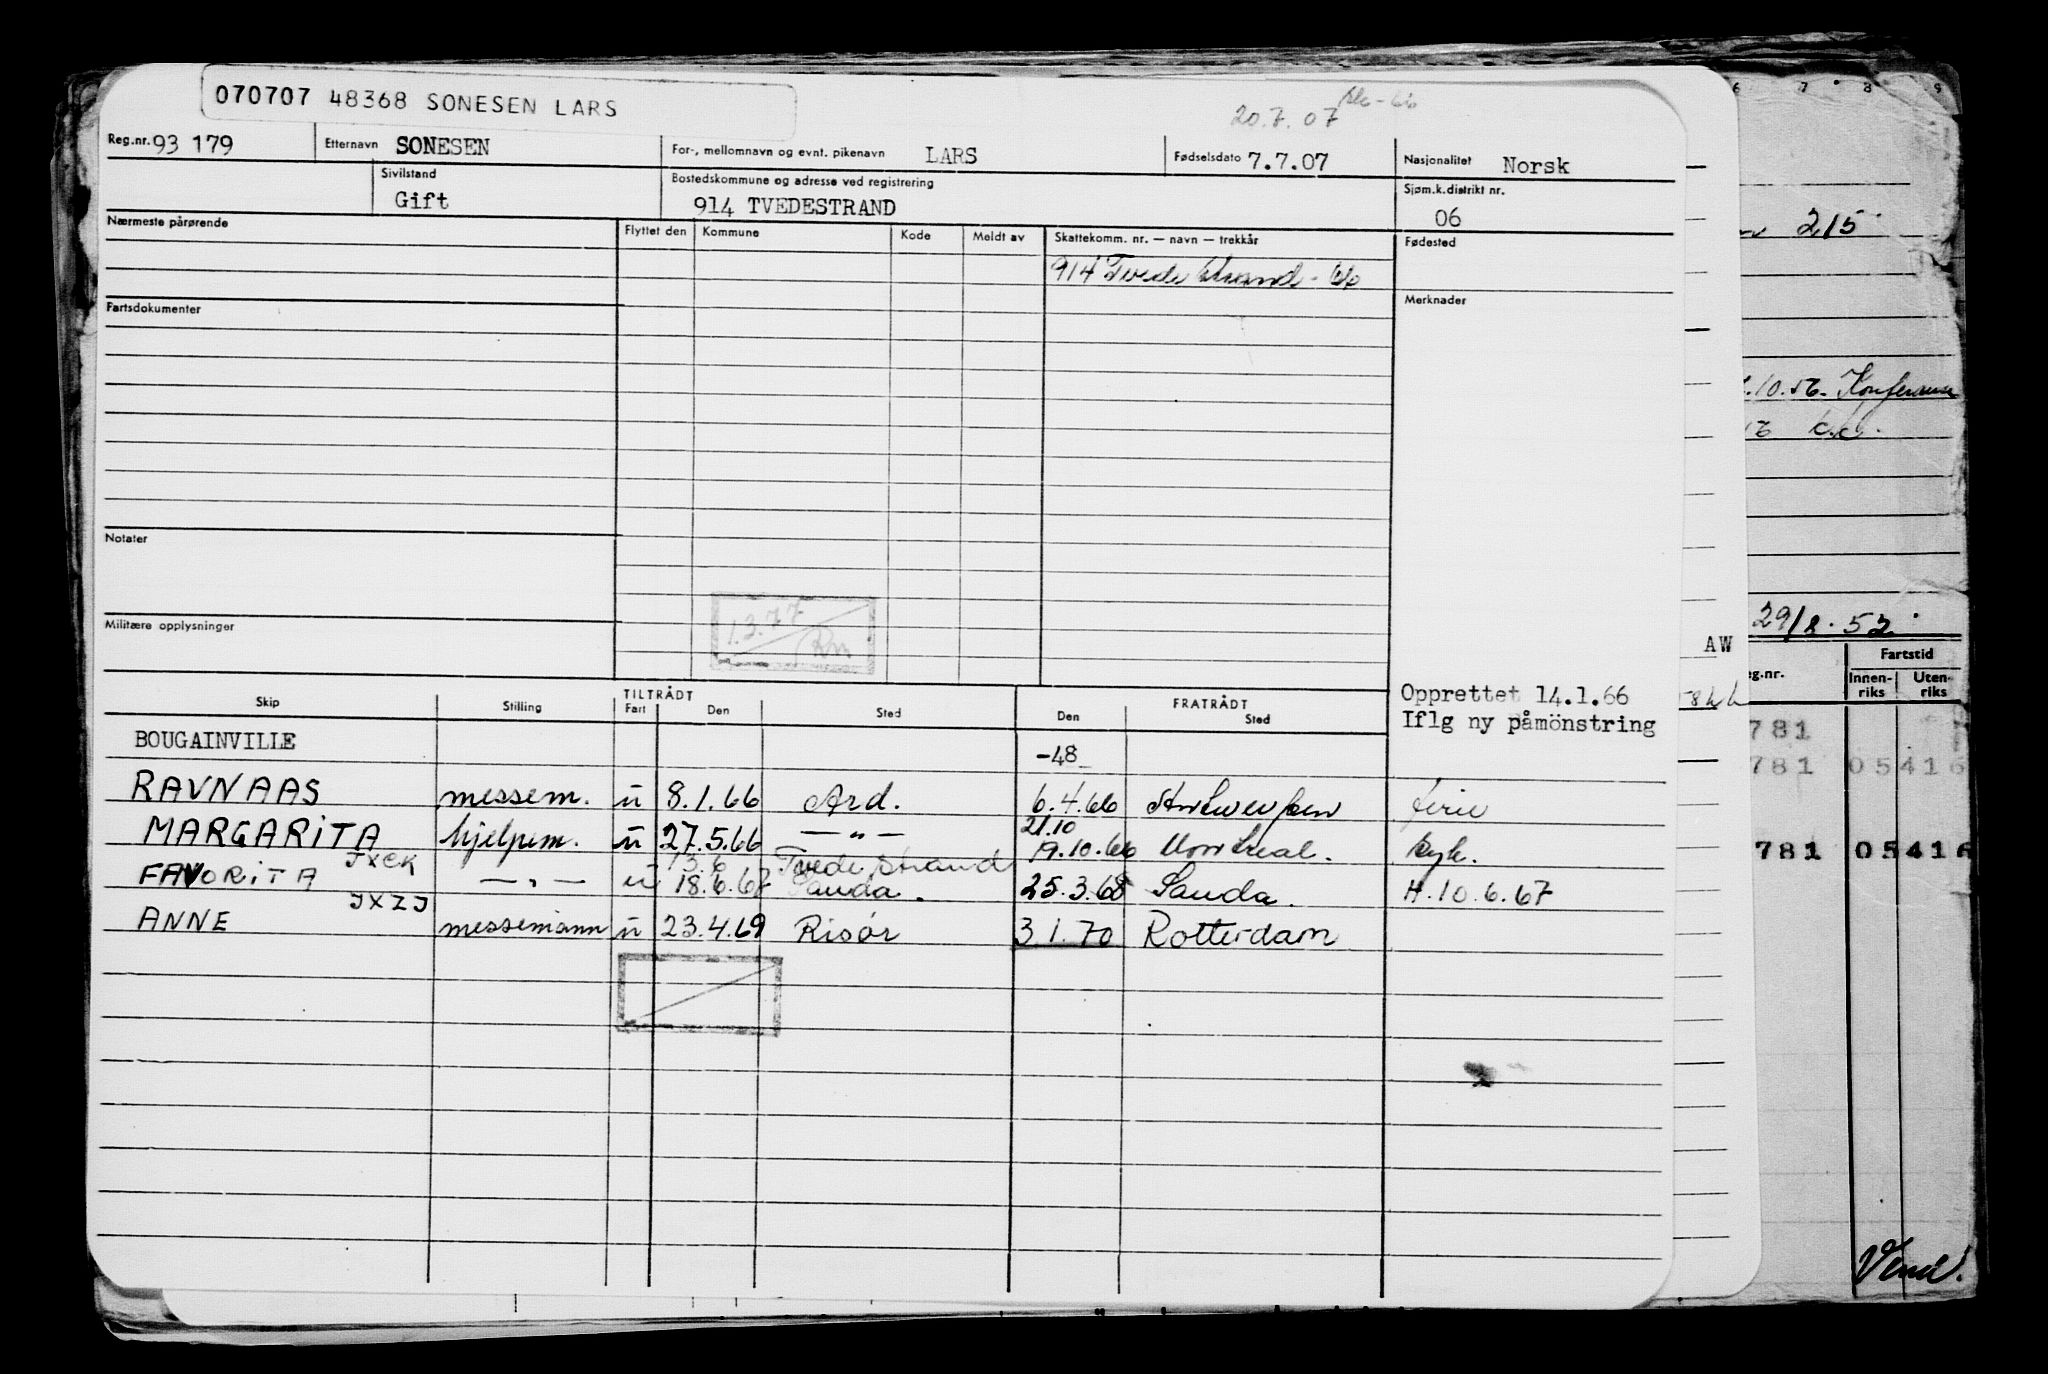 070707 48368 SONESEN LARS
20.7.07
Reg.nr. 93 179 Etternavn SONESEN For-, mellomnavn og evnt. pikenavn LARS Fødselsdato 7.7.07 Nasjonalitet Norsk
Sivilstand Gift Bostedskommune og adresse ved registrering 914 TVEDESTRAND Sjøm.k.distrikt nr. 06
Nærmeste pårørende Flyttet den Kommune Kode Meldt av Skattekomm. nr. — navn — trekkår Fødested
914 Tvedestrand - 66
Fartsdokumenter Merknader
Notater
1.3.77
Militære opplysninger
Opprettet 14.1.66
Iflg ny påmönstring
TILTRÅDT FRATRÅDT
Skip Stilling Fart Den Sted Den Sted
BOUGAINVILLE -48
RAVNAAS messem. u 8.1.66 Ard. 6.4.66 Antwerpen ferie
21.10
MARGARITA hjelpem. u 27.5.66 — " — 19.10.66 Montreal. syk.
JXCK 13.6 Tvedestrand
FAVORITA — " — u 18.6.67 Sauda. 25.3.68 Sauda. H. 10.6.67
JXZJ
ANNE messemann u 23.4.69 Risør 3.1.70 Rotterdam
AW
6 7 8 9
215
.10.56. Konferer
29/8.52
eg.nr. Fartstid
Innen-
riks Uten-
riks
781
781 05416
781 05416
Vend!